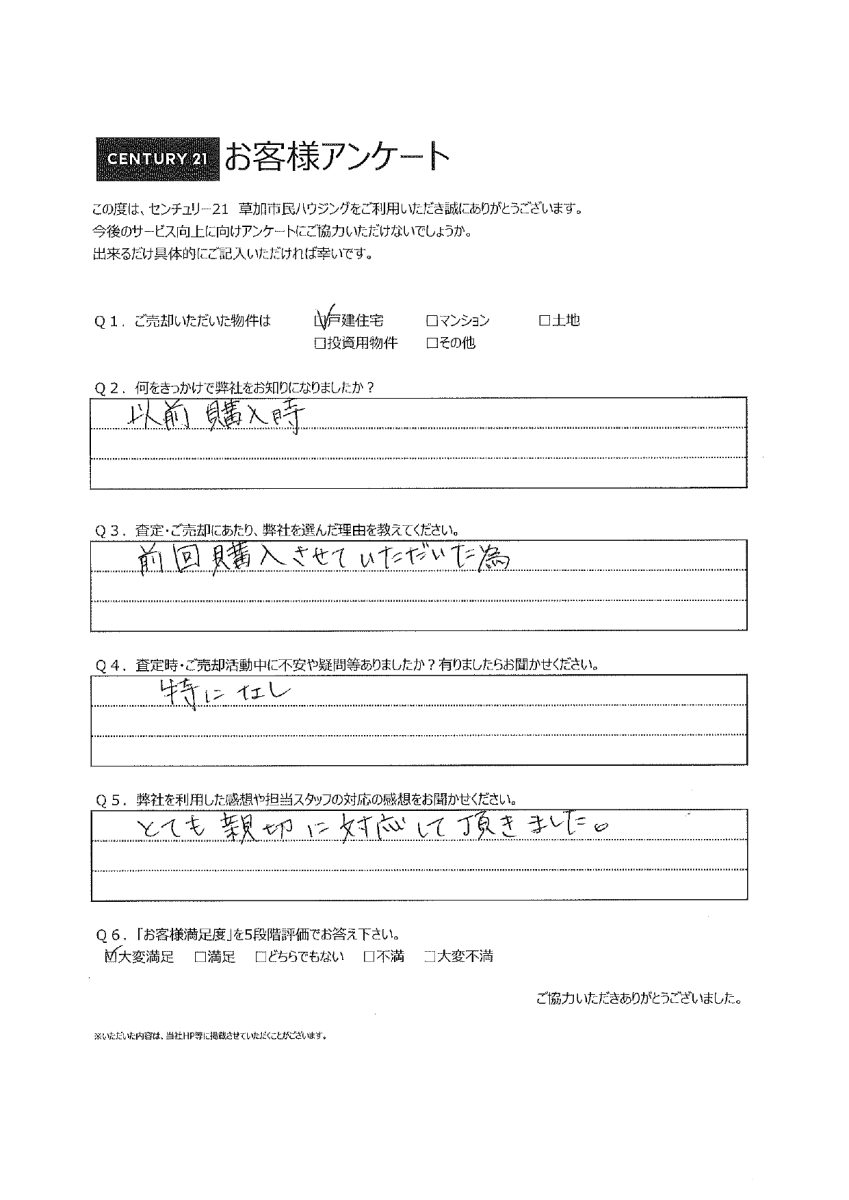 CENTURY 21 お客様アンケート
この度は、センチュリー21 草加市民ハウジングをご利用いただき誠にありがとうございます。
今後のサービス向上に向けアンケートにご協力いただけないでしょうか。
出来るだけ具体的にご記入いただければ幸いです。
Q1. ご売却いただいた物件は ☑戸建住宅 □マンション □土地
□投資用物件 □その他
Q2. 何をきっかけで弊社をお知りになりましたか?
以前購入時
Q3. 査定・ご売却にあたり、弊社を選んだ理由を教えてください。
前回購入させていただいた為
Q4. 査定時・ご売却活動中に不安や疑問等ありましたか?有りましたらお聞かせください。
特になし
Q5. 弊社を利用した感想や担当スタッフの対応の感想をお聞かせください。
とても親切に対応して頂きました。
Q6.「お客様満足度」を5段階評価でお答え下さい。
☑大変満足 □満足 □どちらでもない □不満 □大変不満
ご協力いただきありがとうございました。
※いただいた内容は、当社HP等に掲載させていただくことがございます。